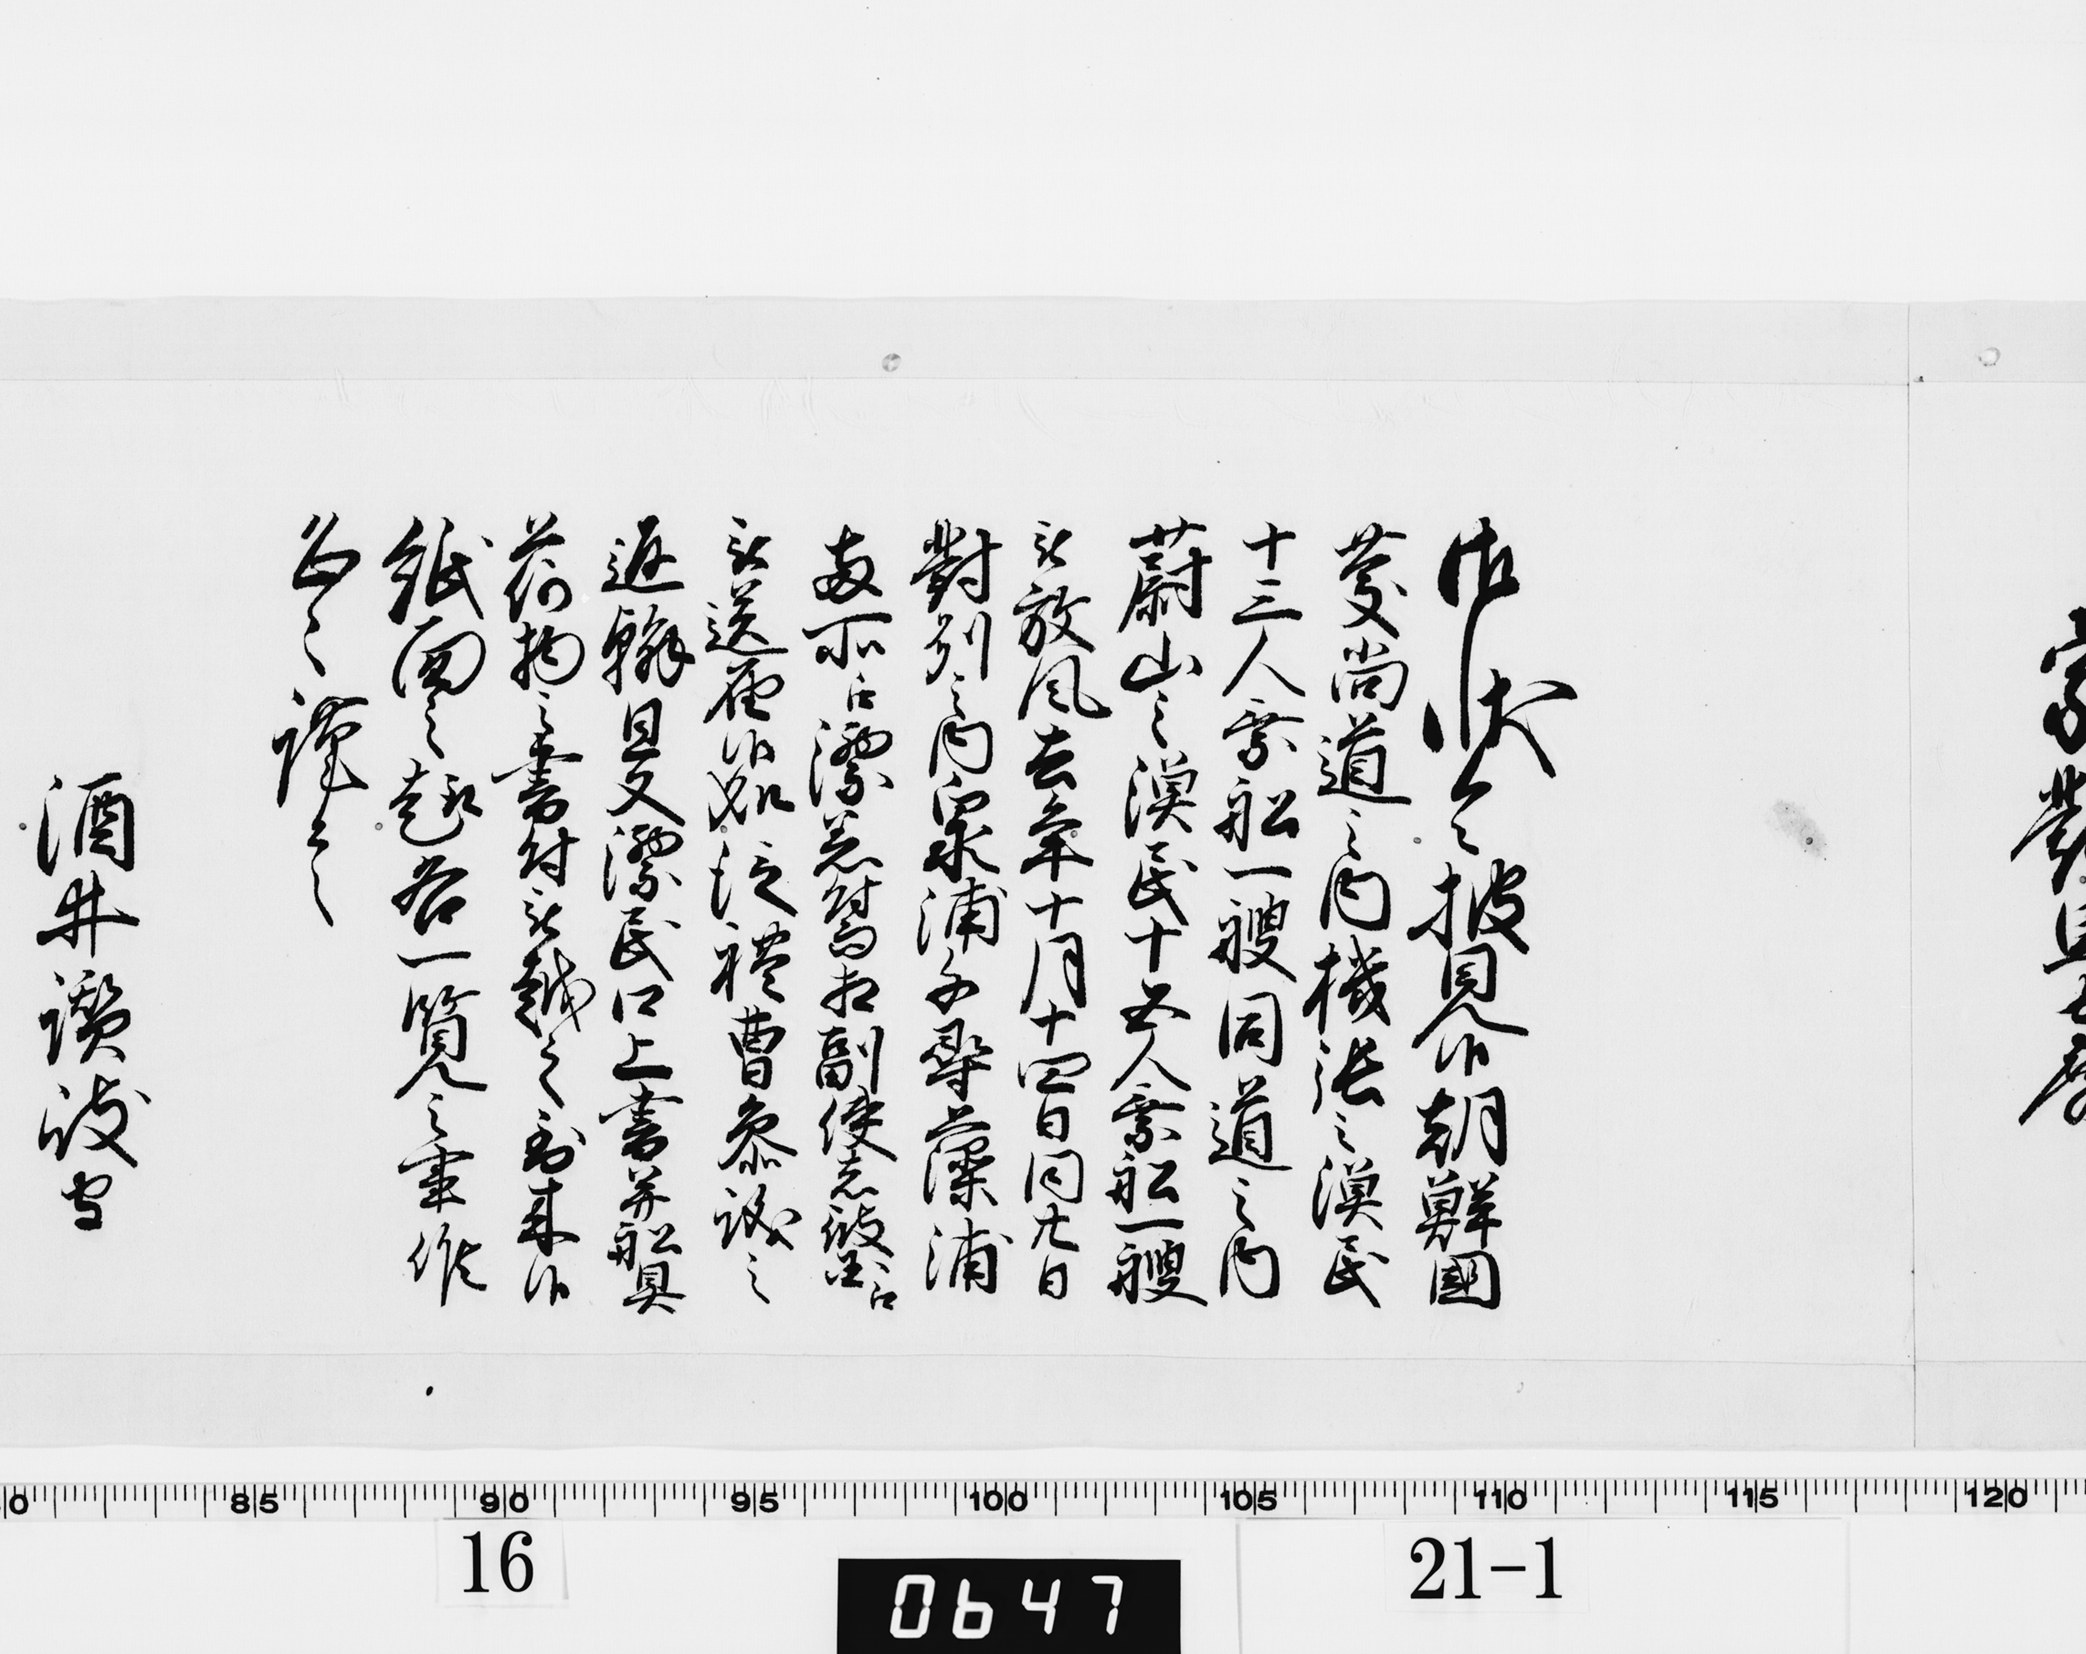 宗對馬守殿
御状令披見候朝鮮國
慶尚道之内機張之漁民
十三人乗舩一艘同道之内
蔚山之漁民十五人乗舩一艘
被放風去年十月十四日同廿九日
對州之内泉浦并琴藻浦
両所江漂着付而相副使者釜山江
被送届候処従禮曹参議之
返翰且又漂民口上書并船具
荷物之書付被越之到来候
紙面之趣各一覧之事候
恐々謹言
酒井讃岐守
80 85 90 95 100 105 110 115 120
16
0647
21-1